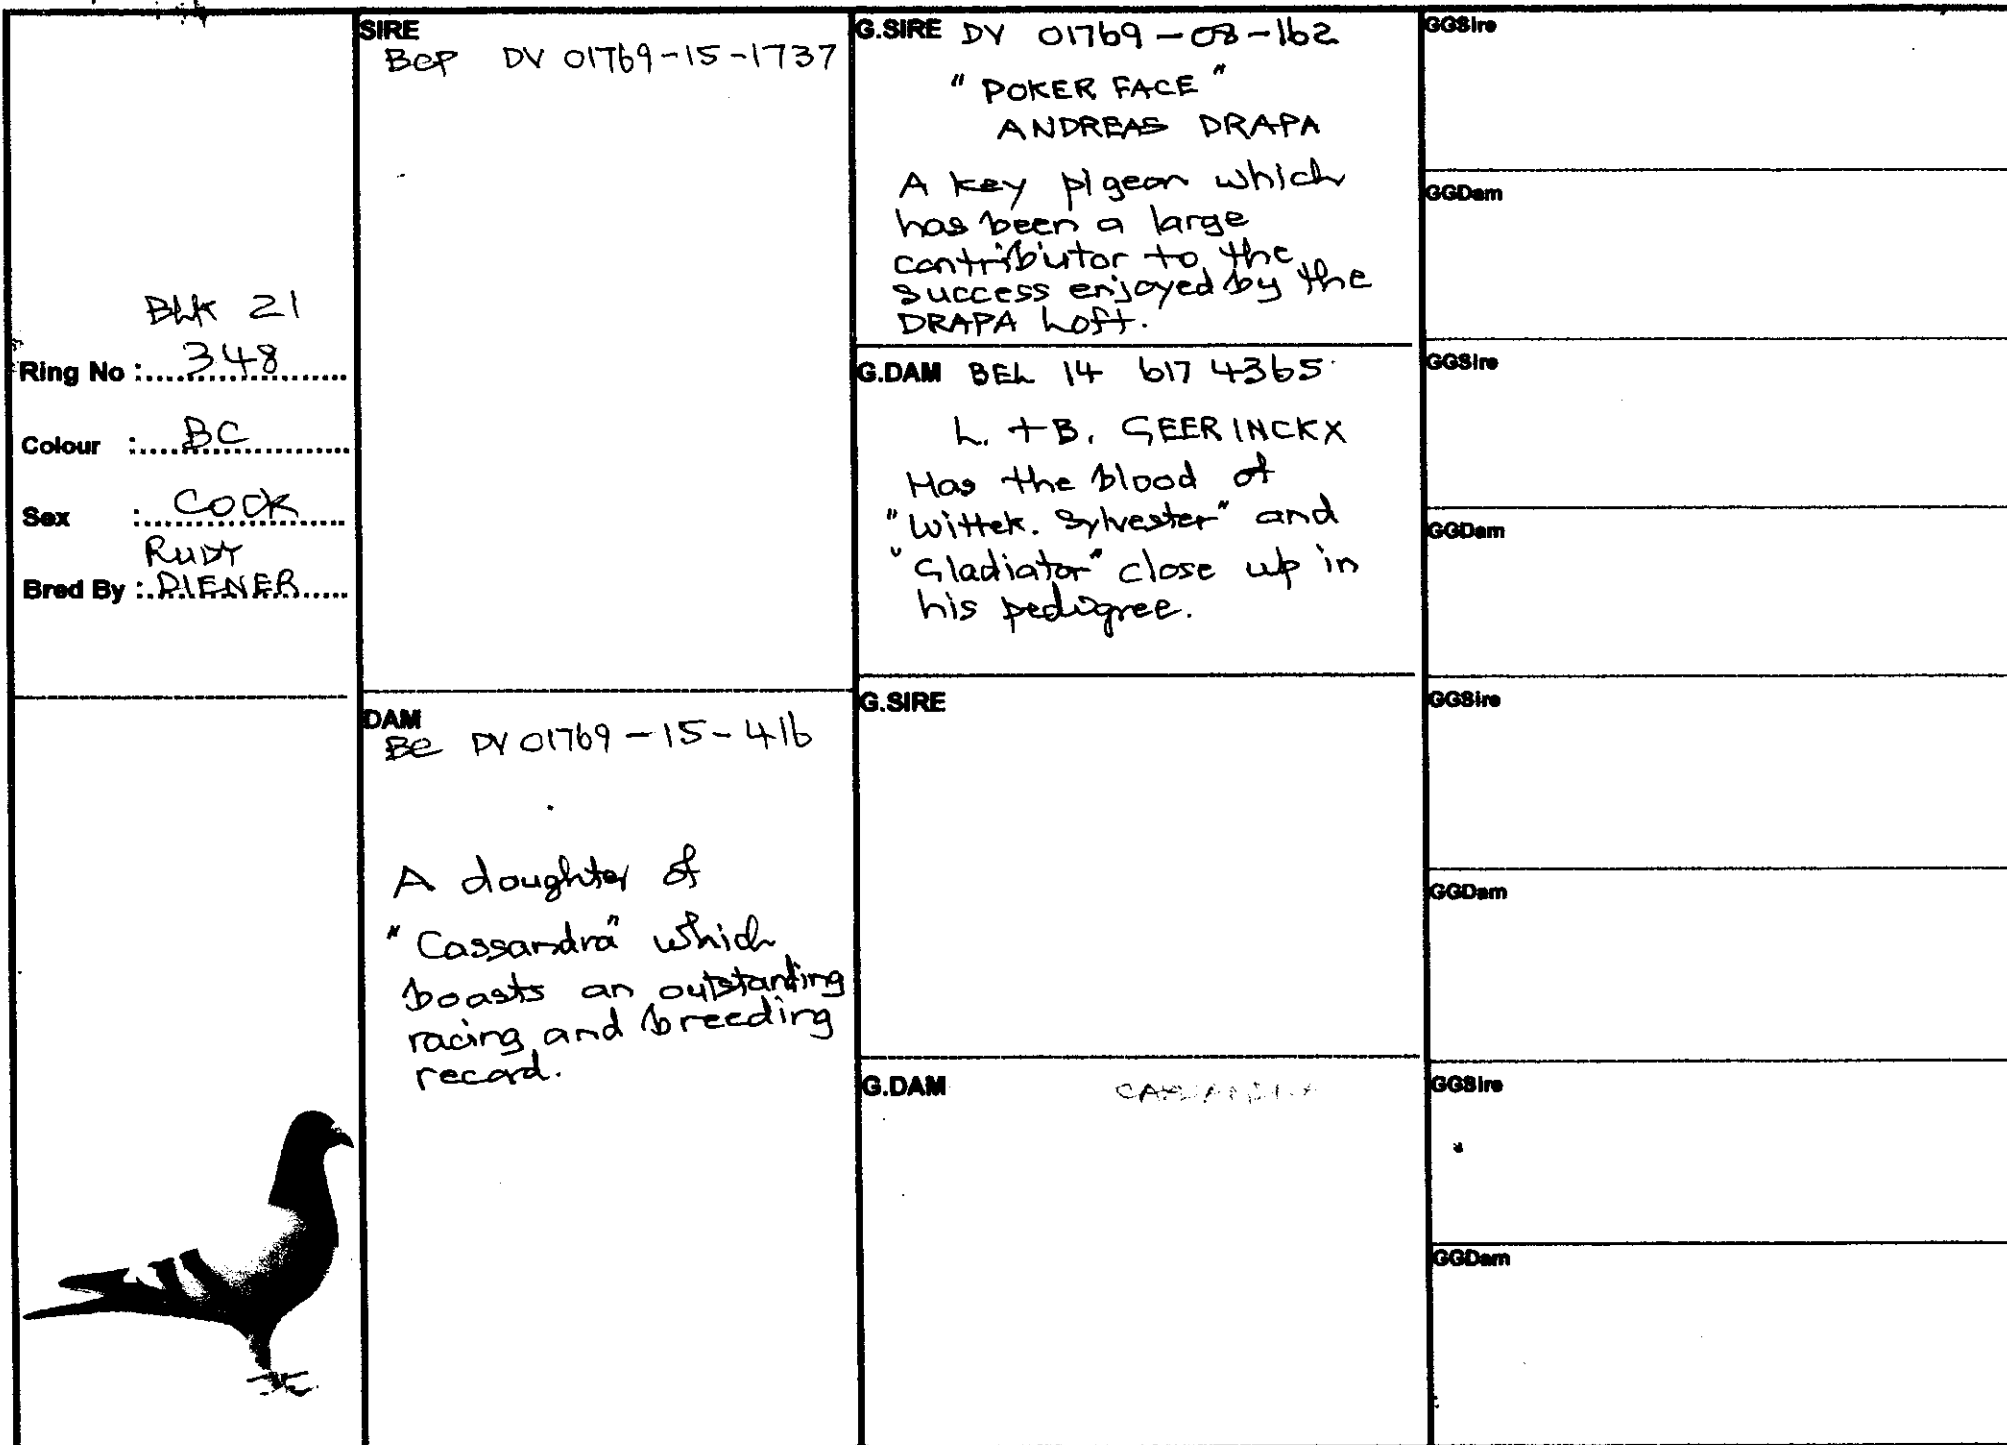 BLK 21
Ring No : 348
Colour : BC
Sex : COCK
RUDY
Bred By : DIENER
SIRE
BCP DV 01769-15-1737
DAM
BC DV 01769-15-416
A daughter of
"Cassandra" which
boasts an outstanding
racing and breeding
record.
G.SIRE DV 01769-08-162
"POKER FACE"
ANDREAS DRAPA
A key pigeon which
has been a large
contributor to the
success enjoyed by the
DRAPA Loft.
G.DAM BEL 14 617 4365
L. + B. GEERINCKX
Has the blood of
"Wittek. Sylvester" and
"Gladiator" close up in
his pedigree.
G.SIRE
G.DAM
GGSire
GGDam
GGSire
GGDam
GGSire
GGDam
GGSire
GGDam